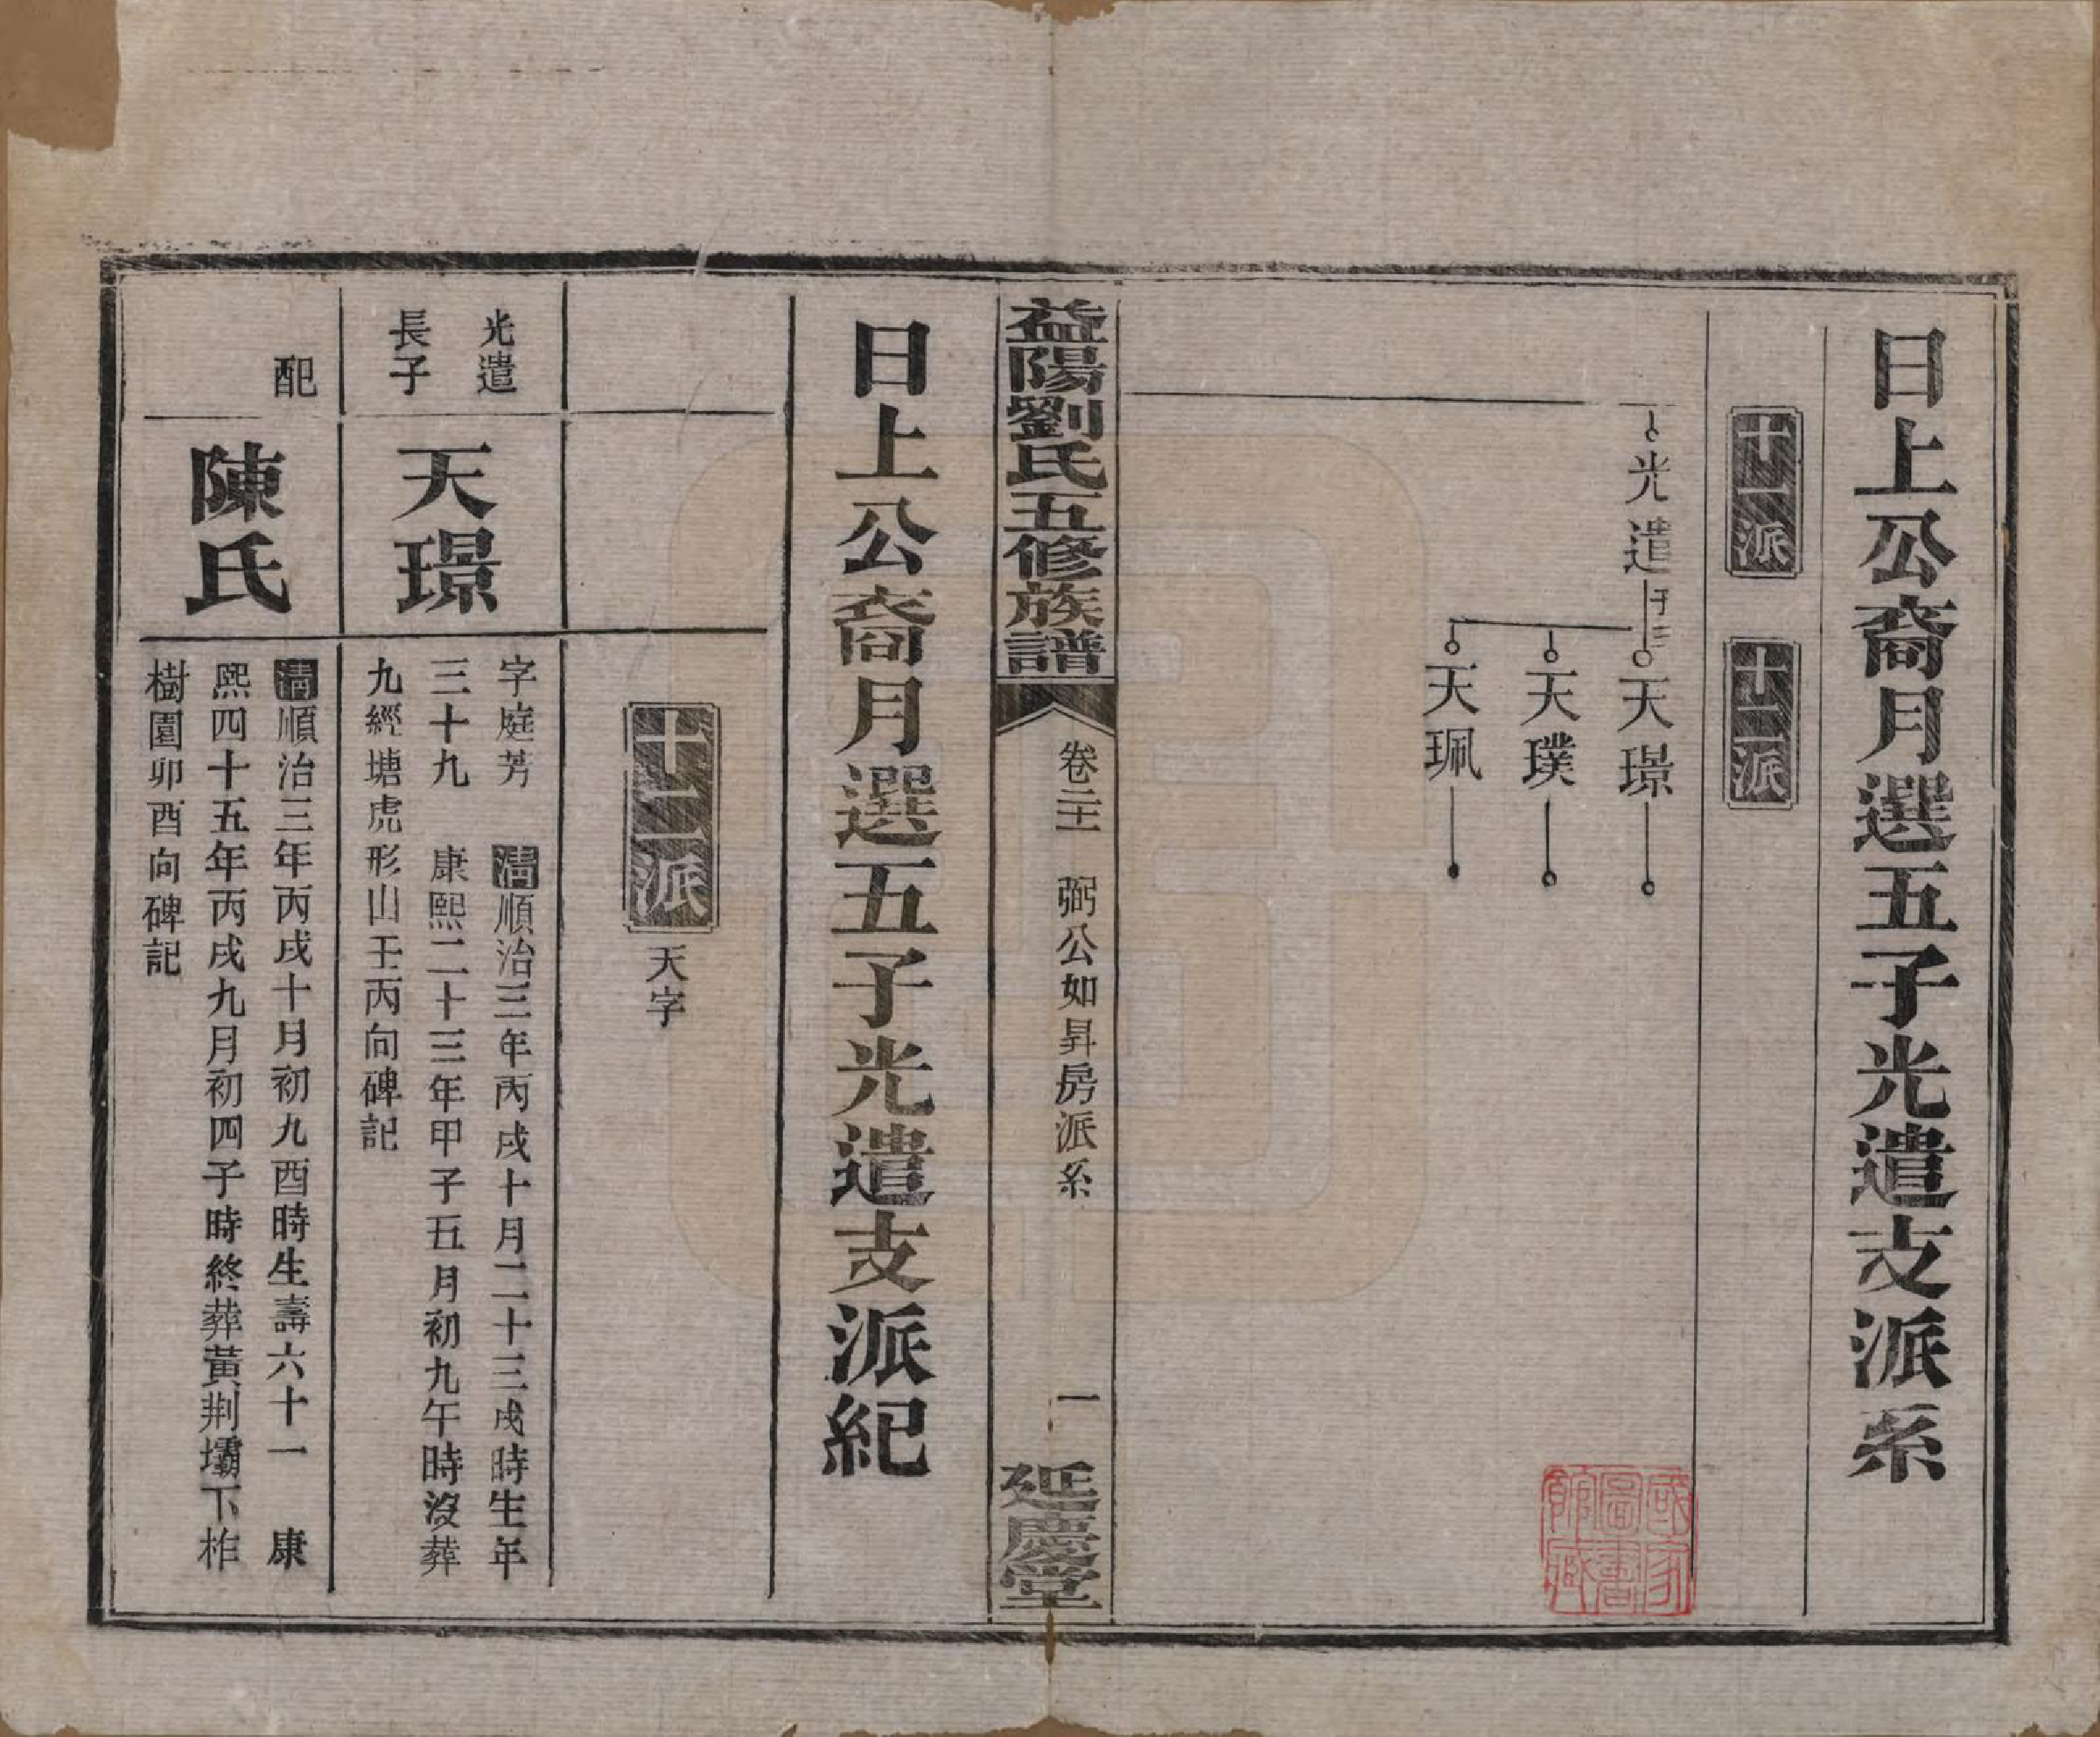 日上公裔月選五子光遣支派系
十一派
十二派
光遣
子三
天璟
天璞
天珮
國家圖書館藏
益陽劉氏五修族譜
卷二十一
弼公如昇房派系
一
延慶堂
日上公裔月選五子光遣支派紀
十二派
天字
光遣
長子
天璟
字庭芳 清順治三年丙戌十月二十三戌時生年
三十九 康熙二十三年甲子五月初九午時沒葬
九經塘虎形山壬丙向碑記
配
陳氏
清順治三年丙戌十月初九酉時生壽六十一 康
熙四十五年丙戌九月初四子時終葬黃荆壩下柞
樹園卯酉向碑記